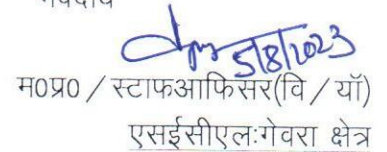 5/8/2023
म0प्र0 / स्टाफआफिसर(वि / यॉ)
एसईसीएल:गेवरा क्षेत्र